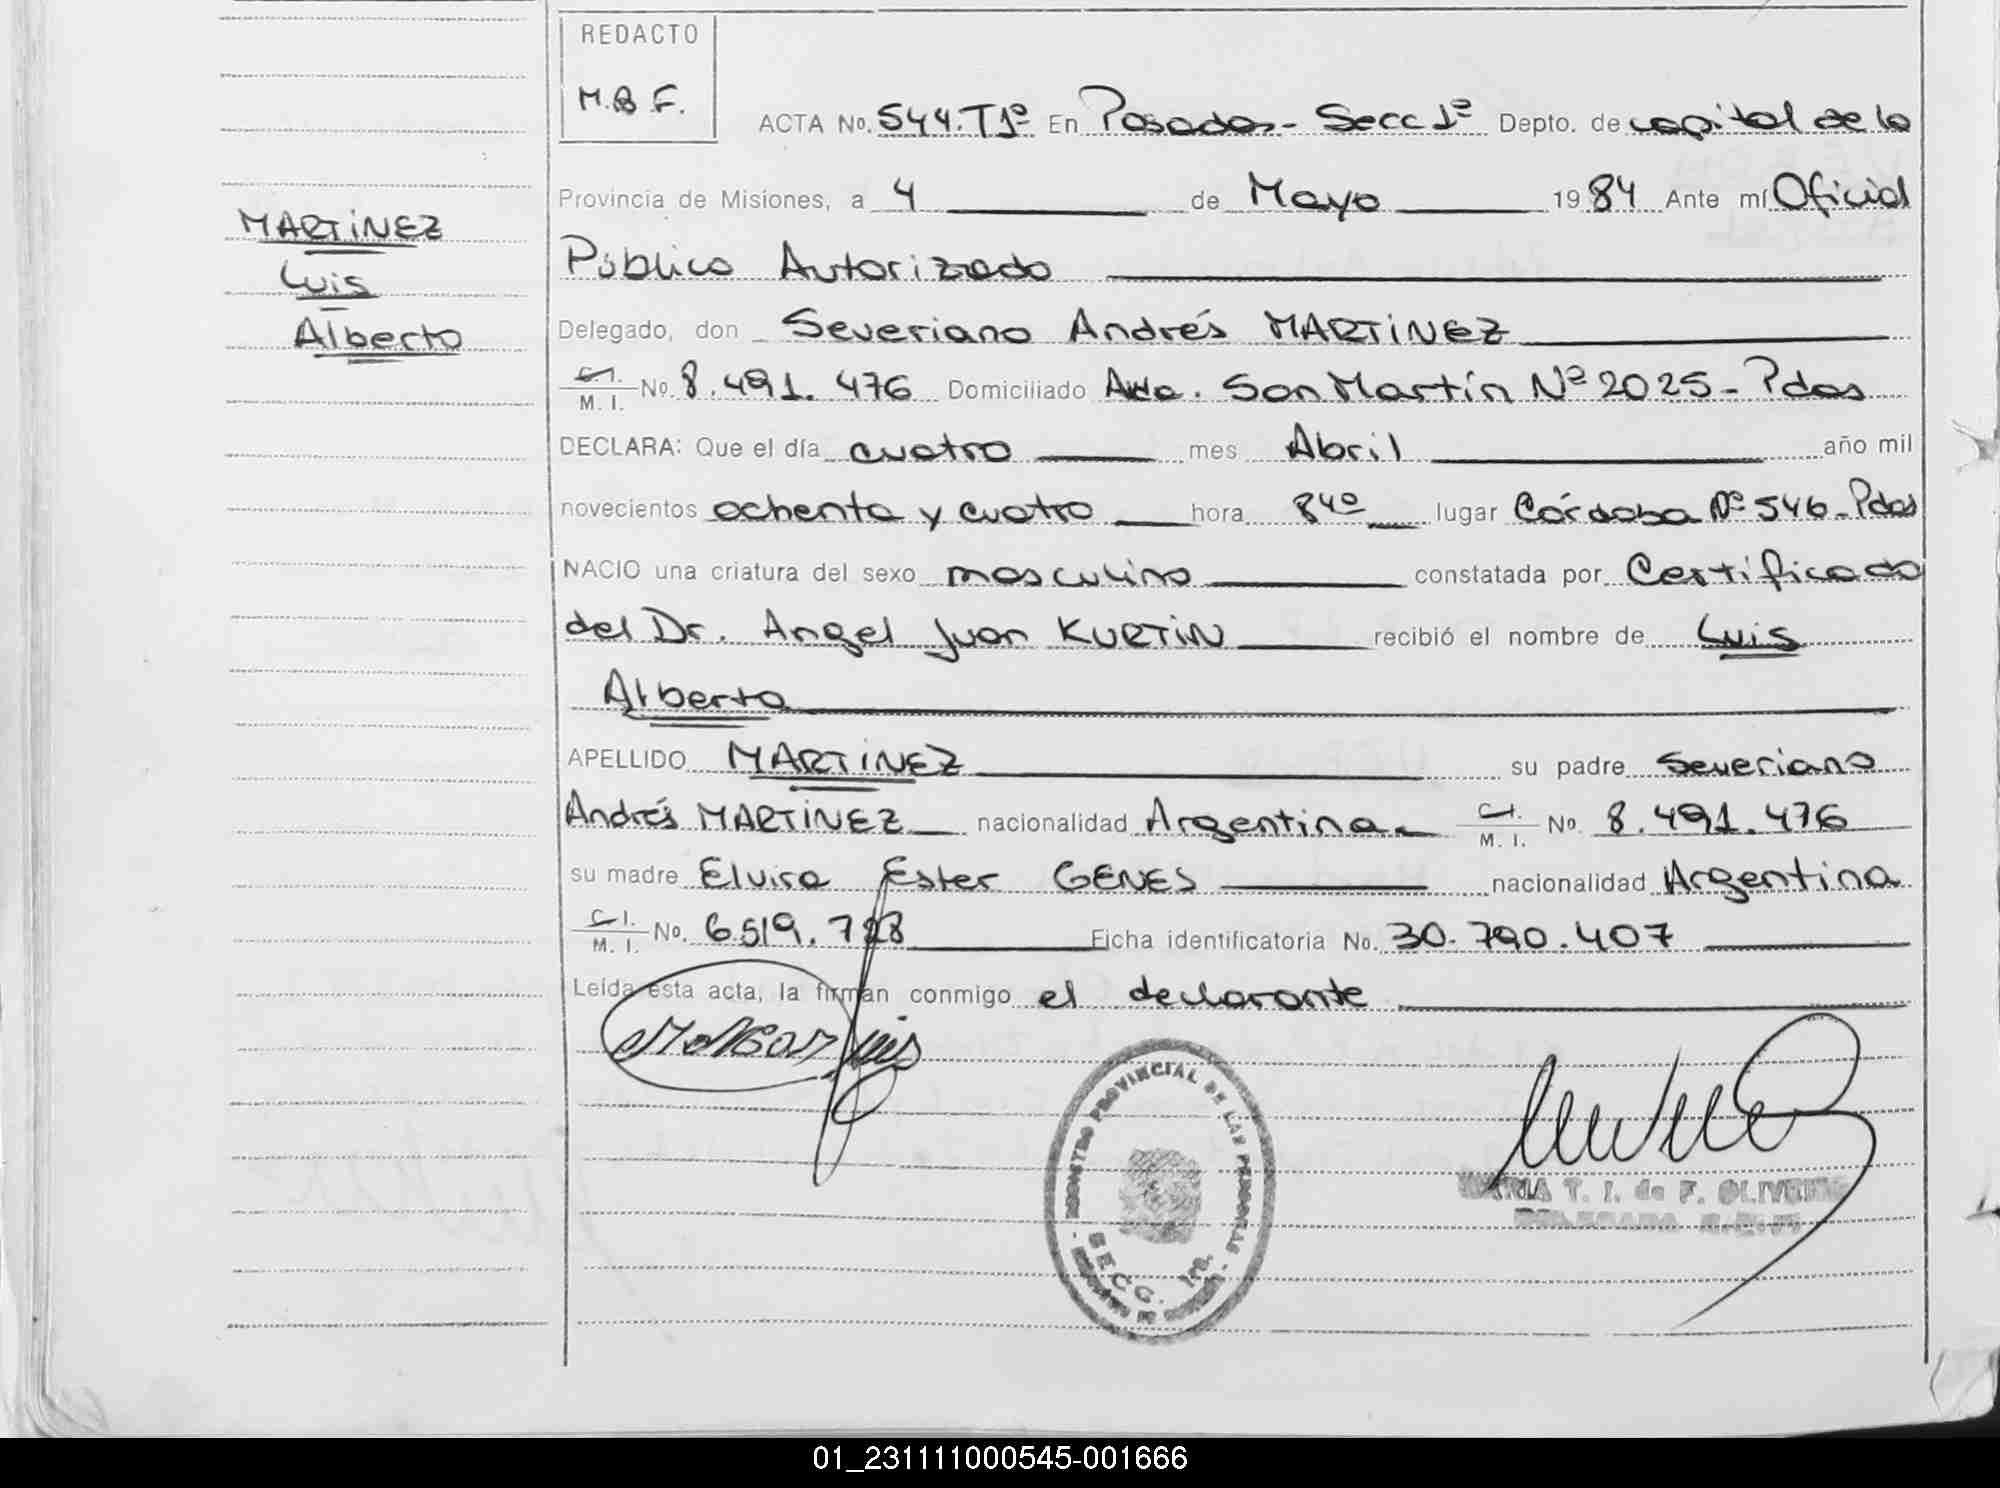 REDACTO
M.B.F.
ACTA No. 544.T1º En Posadas - Secc 1º Depto. de capital de la
Provincia de Misiones, a 4 de Mayo 1984 Ante mí Oficial
Público Autorizado
Delegado, don Severiano Andrés MARTINEZ
C.I. / M.I. No. 8.491.476 Domiciliado Avda. San Martín Nº 2025 - Pdas
DECLARA: Que el día cuatro mes Abril año mil
novecientos ochenta y cuatro hora 8 40 lugar Córdoba Nº 546 - Pdas
NACIO una criatura del sexo masculino constatada por Certificado
del Dr. Angel Juan KURTIN recibió el nombre de Luis
Alberto
APELLIDO MARTINEZ su padre Severiano
Andrés MARTINEZ nacionalidad Argentina C.I. / M.I. No. 8.491.476
su madre Elvira Ester GENES nacionalidad Argentina
C.I. / M.I. No. 6.519.728 Ficha identificatoria No. 30.790.407
Leída esta acta, la firman conmigo el declarante
MARTINEZ
Luis
Alberto
REGISTRO PROVINCIAL DE LAS PERSONAS
SECC. 1ra.
MARIA T. I. de F. OLIVEIRA
01_231111000545-001666